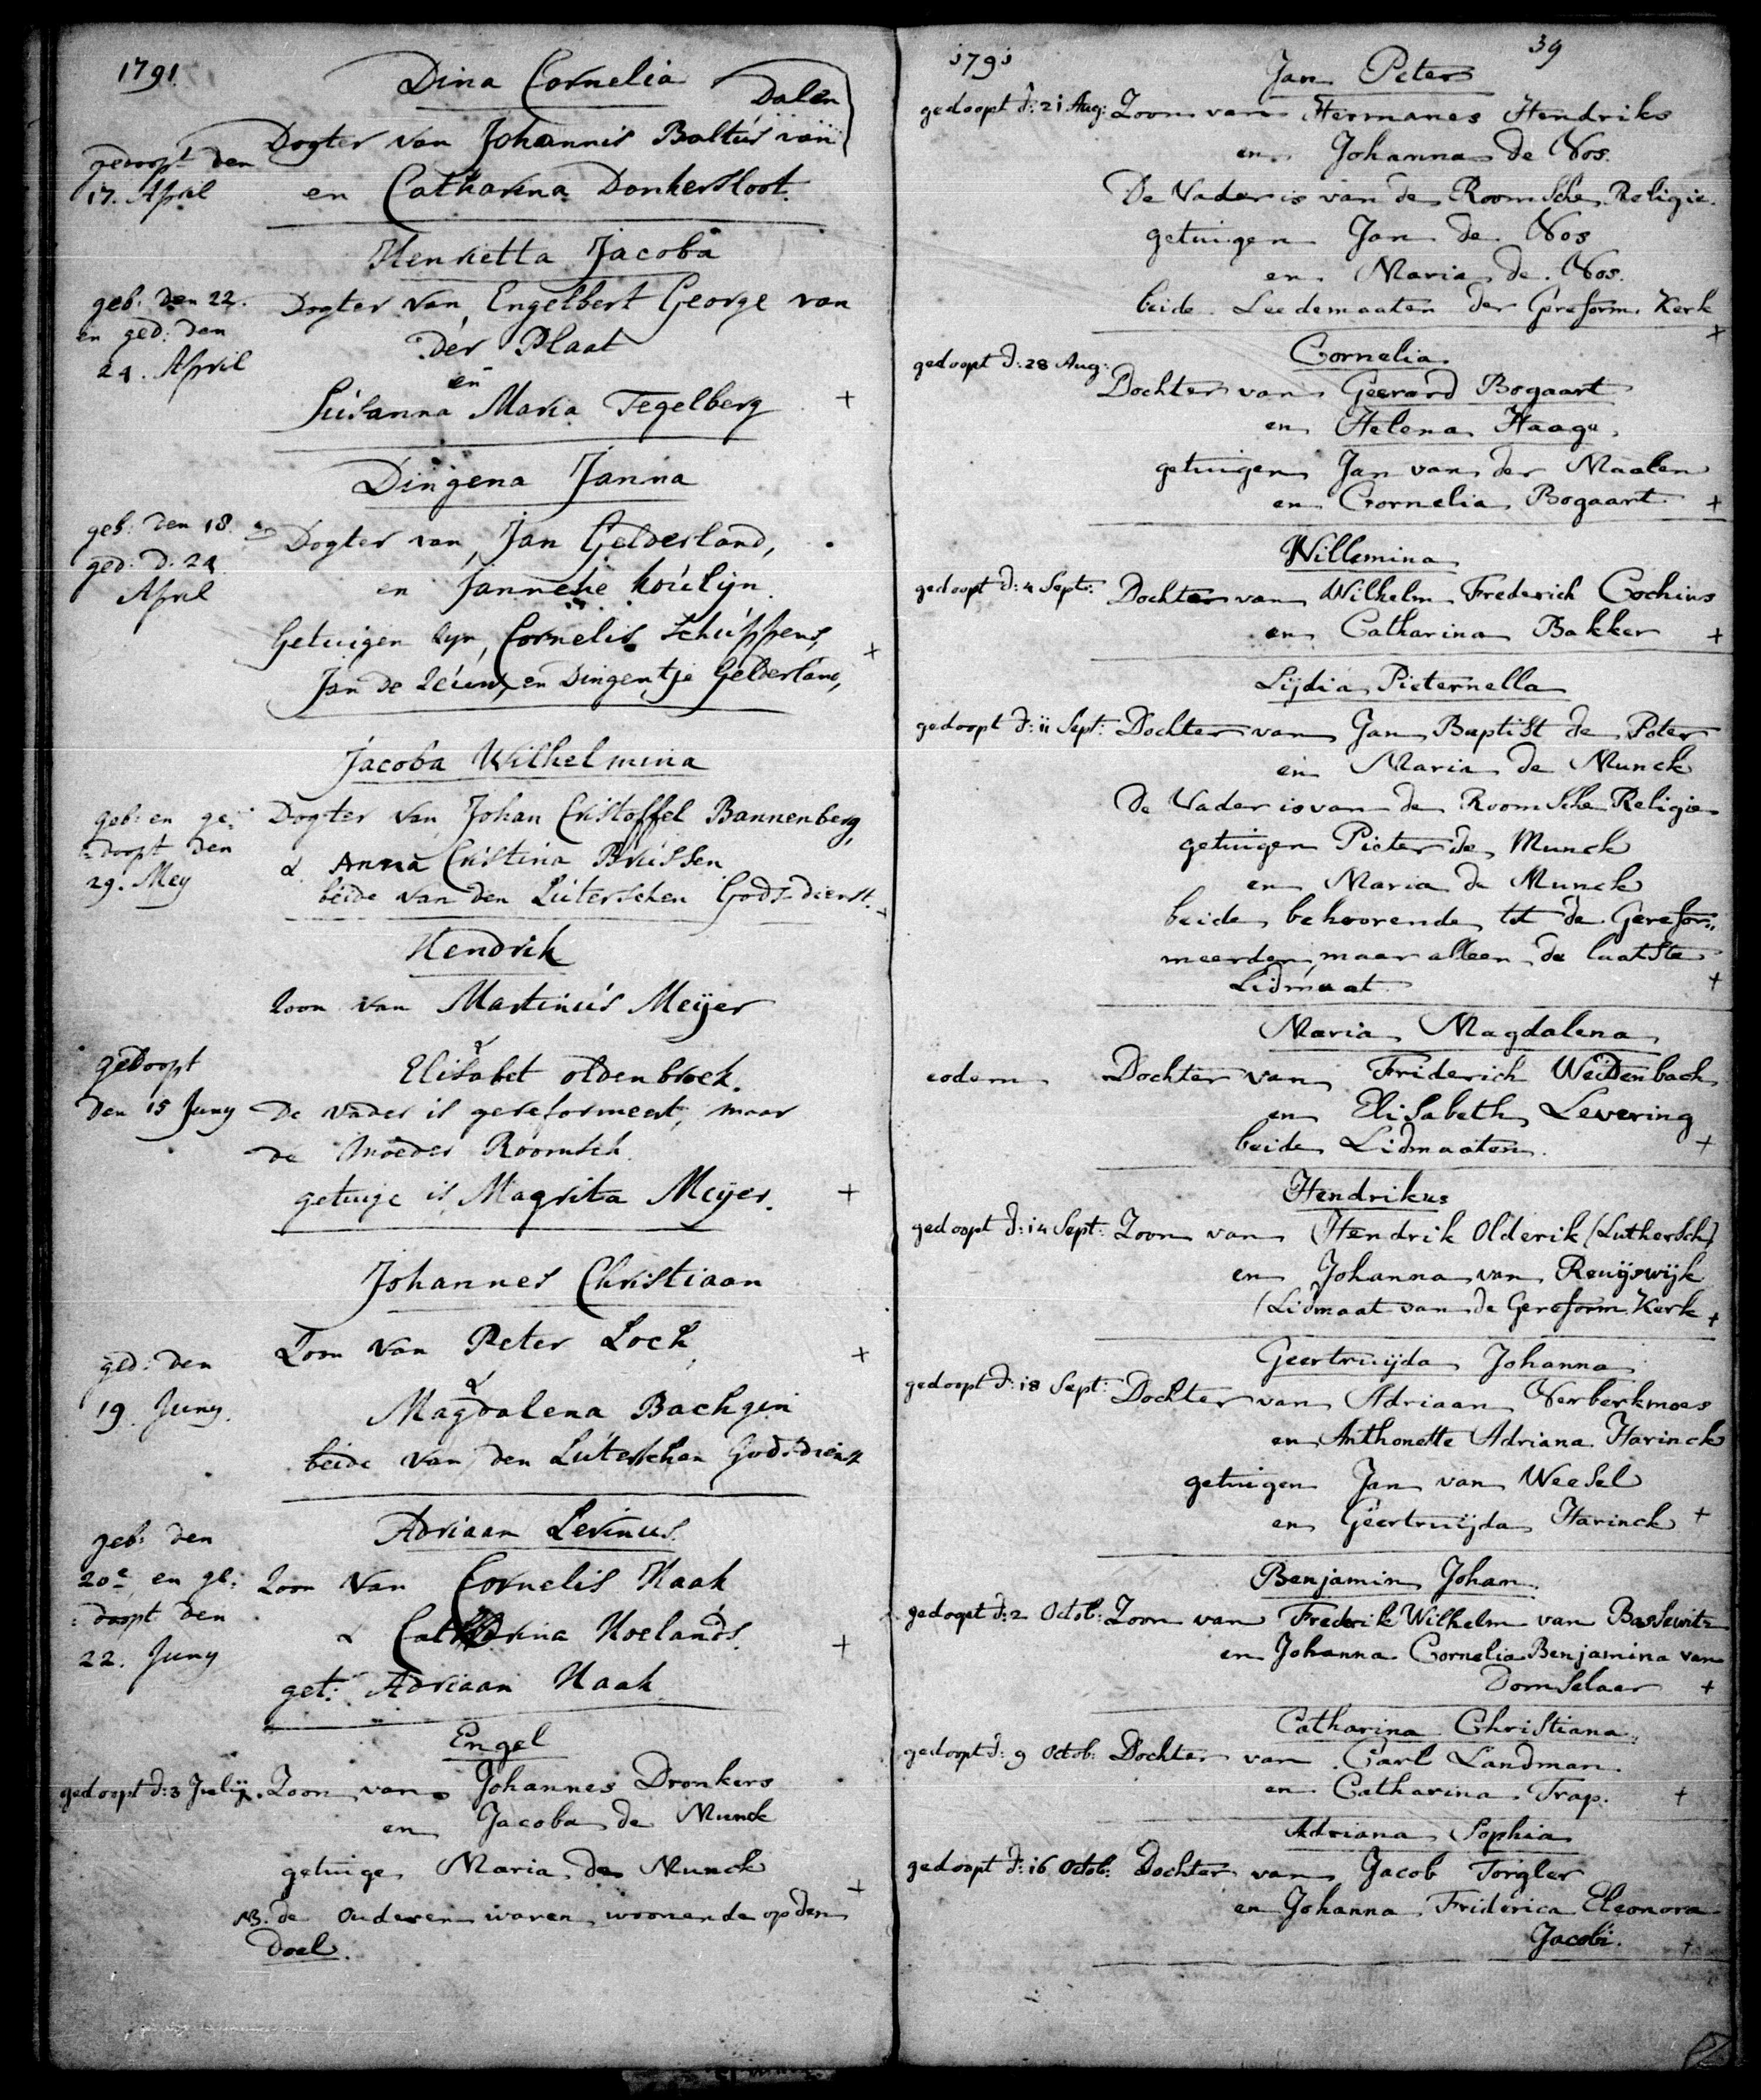 1791.
Dina Cornelia
Dalen
gedoopt den
17. April
Dogter van Johannis Baltus van
en Catharina Donkersloot.
Henrietta Jacoba
geb: den 22.
en ged: den
24. April
Dogter van Engelbert George van
der Plaat
en
Susanna Maria Tegelberg +
Dingena Janna
geb: den 18. en
ged: d. 24
April
Dogter van, Jan Gelderland,
en Janneke Koulijn.
Getuigen zyn, Cornelis Schuppens,
Jan de Leeuw, en Dingentje Gelderland, +
Jacoba Wilhelmina
geb: en ge:
:doopt den
29. Mey
Dogter van Johan Cristoffel Bannenberg,
& Anna Cristina Brussen
beide van den Luterschen Godsdienst. +
Hendrik
gedoopt
den 15 Juny
Zoon van Martinus Meijer
&
Elisabet oldenbroek.
De vader is gereformeert, maar
de Moeder Roomsch.
getuige is Magrita Meijer. +
Johannes Christiaan
ged: den
19. Juny.
Zoon van Peter Loch +
&
Magdalena Bachgin
beide van den Luterschen Godsdienst
Adriaan Levinus
geb: den
20e en ge:
:doopt den
22. Juny
Zoon van Cornelis Haak
& Catharina Roelands. +
get: Adriaan Haak
Engel
gedoopt d: 3 Julij. Zoon van Johannes Dronkers
en Jacoba de Munck
getuige Maria de Munck +
NB. de Ouderen waren woonende op den
Doel.
1791 39
Jan Peter
gedoopt d: 21 Aug: Zoon van Hermanes Hendriks
en Johanna de Vos.
De Vader is van de Roomsche Religie.
getuigen Jan de Vos
en Maria de Vos.
beide Leedemaaten der Gereform. Kerk +
Cornelia
gedoopt d: 28 Aug: Dochter van Geerard Bogaart
en Helena Haage,
getuigen Jan van der Maalen
en Cornelia Bogaart +
Willemina
gedoopt d: 4 Sept: Dochter van Wilhelm Frederich Cochius
en Catharina Bakker +
Lijdia Pieternella
gedoopt d: 11 Sept: Dochter van Jan Baptist de Poter
en Maria de Munck
De Vader is van de Roomsche Religie
getuigen Pieter de Munck
en Maria de Munck
beide behoorende tot de Gerefor:
meerden, maar alleen de laatste
Lidmaat +
Maria Magdalena
eodem Dochter van Friderich Weidenbach
en Elisabeth Levering
beide Lidmaaten. +
Hendrikus
gedoopt d: 14 Sept: Zoon van Hendrik Olderik (Luthersch)
en Johanna van Reuijswijk
(Lidmaat van de Gereform. Kerk +
Geertruijda Johanna
gedoopt d: 18 Sept: Dochter van Adriaan Verberkmoes
en Anthonette Adriana Harinck
getuigen Jan van Weesel
en Geertruijda Harinck +
Benjamin Johan.
gedoopt d: 2 Octob: Zoon van Frederik Wilhelm van Bassewitz
en Johanna Cornelia Benjamina van
Domselaer +
Catharina Christiana
gedoopt d: 9 Octob: Dochter van Carl Landman.
en Catharina Trap. +
Adriana Sophia
gedoopt d: 16 Octob: Dochter van Jacob Torgler
en Johanna Friderica Eleonora
Jacobi. +